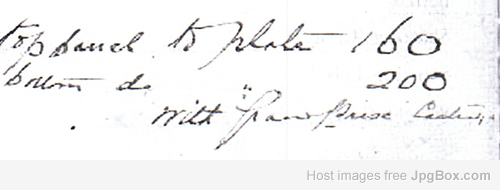 top panel to plate 160
bottom do " 200
with Casting
Host images free JpgBox.com